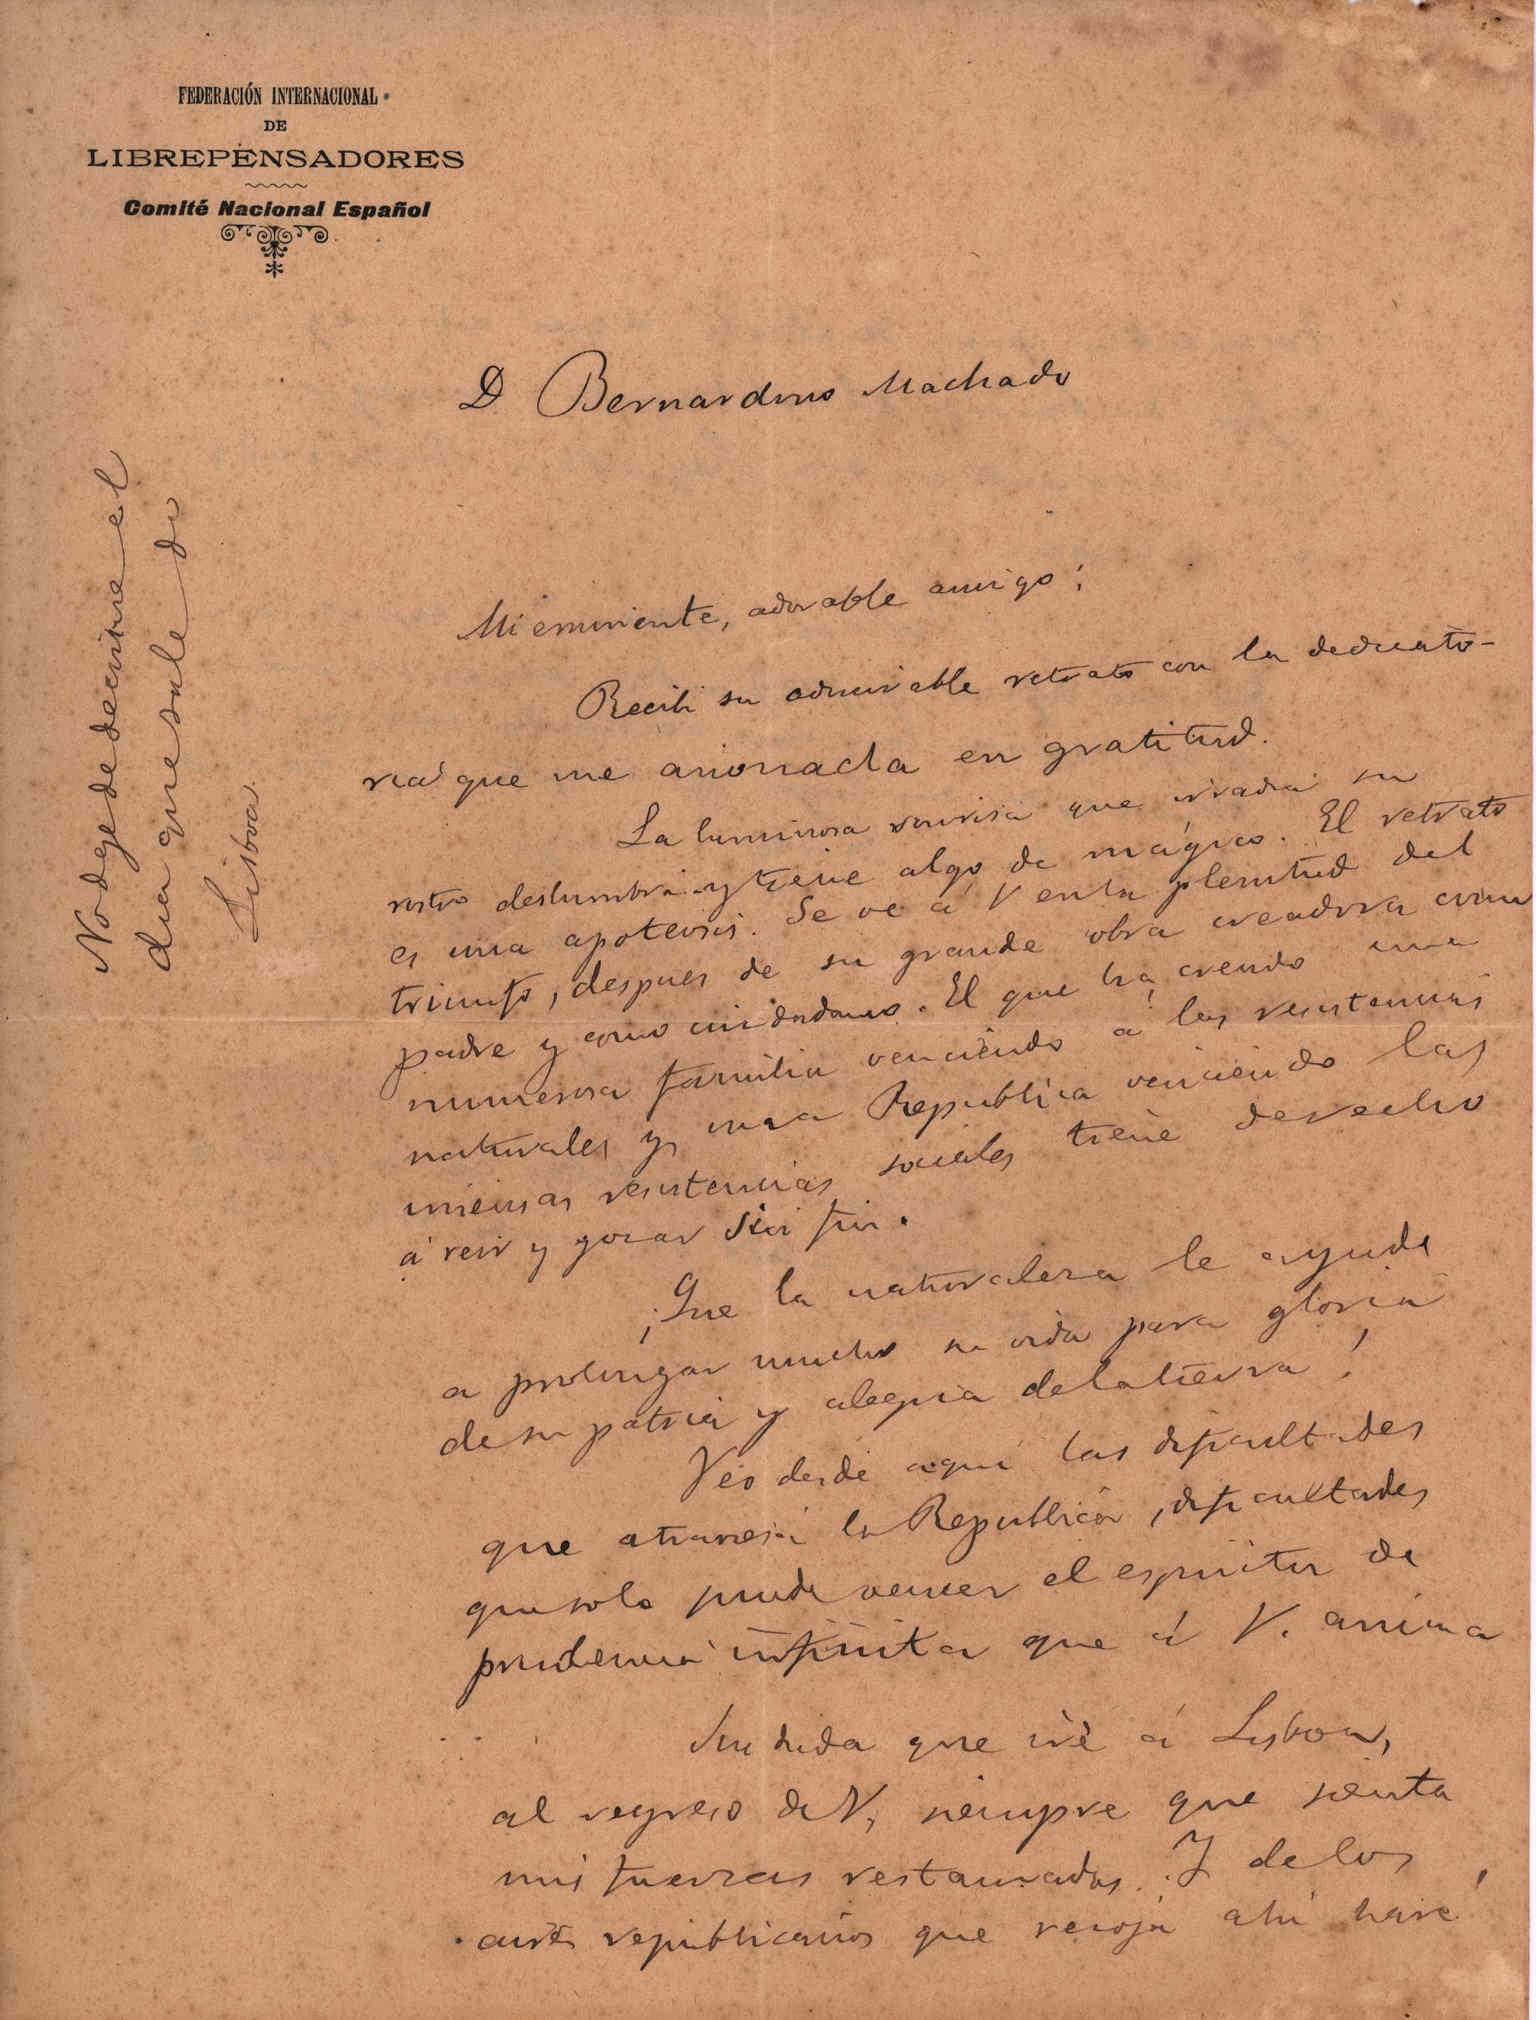 FEDERACIÓN INTERNACIONAL
DE
LIBREPENSADORES
Comité Nacional Español
D Bernardino Machado
Mi eminente, adorable amigo:
Recibi su admirable retrato con la dedicato-
ria que me anonada en gratitud.
La luminosa sonrisa que irradia su
rostro deslumbra y tiene algo de mágico. El retrato
es una apoteosis. Se ve á V en la plenitud del
triunfo, despues de su grande obra creadora como
padre y como ciudadano. El que ha creado una
numerosa familia venciendo á las resistencias
naturales y una Republica venciendo las
inmensas resistencias sociales tiene derecho
á reir y gozar sin fin.
¡Que la naturaleza le ayude
a prolongar mucho su vida para gloria
de su patria y alegria de la tierra!
Veo desde aqui las dificultades
que atraviesa la Republica, dificultades
que solo puede vencer el espiritu de
prudencia infinita que á V. anima
Sin duda que iré á Lisboa,
al regreso de V, siempre que sienta
mis fuerzas restauradas. Y de los
aires republicanos que recoja ahi haré
No deje de decirme el
dia que sale de
Lisboa.